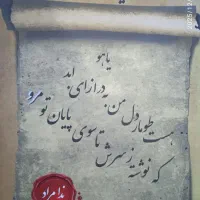 یا هو
هست طومار دل من به درازای ابد
که نوشته ز سرش تا سوی پایان تو مرو
نامراد